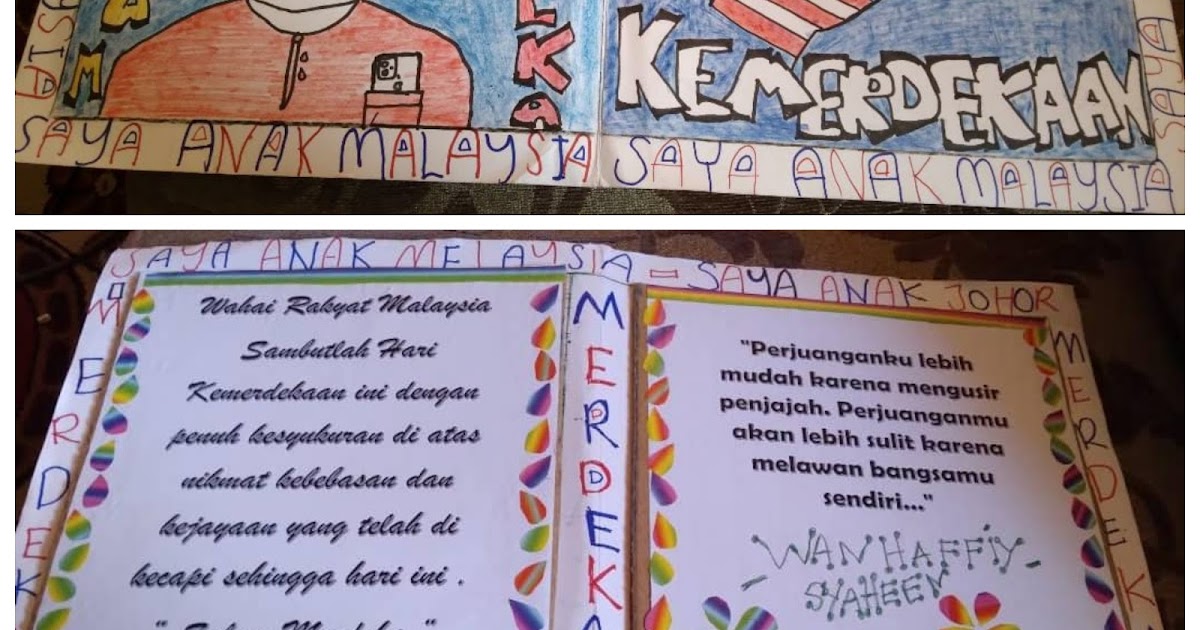 KEMERDEKAAN
SAYA ANAK MALAYSIA SAYA ANAK MALAYSIA
SAYA
SAYA ANAK MELAYSIA - SAYA ANAK JOHOR
MERDEK
Wahai Rakyat Malaysia
Sambutlah Hari
Kemerdekaan ini dengan
penuh kesyukuran di atas
nikmat kebebasan dan
kejayaan yang telah di
kecapi sehingga hari ini .
MERDEKA
"Perjuanganku lebih
mudah karena mengusir
penjajah. Perjuanganmu
akan lebih sulit karena
melawan bangsamu
sendiri..."
WAN HAFFIY
- SYAHEEN -
MERDEK